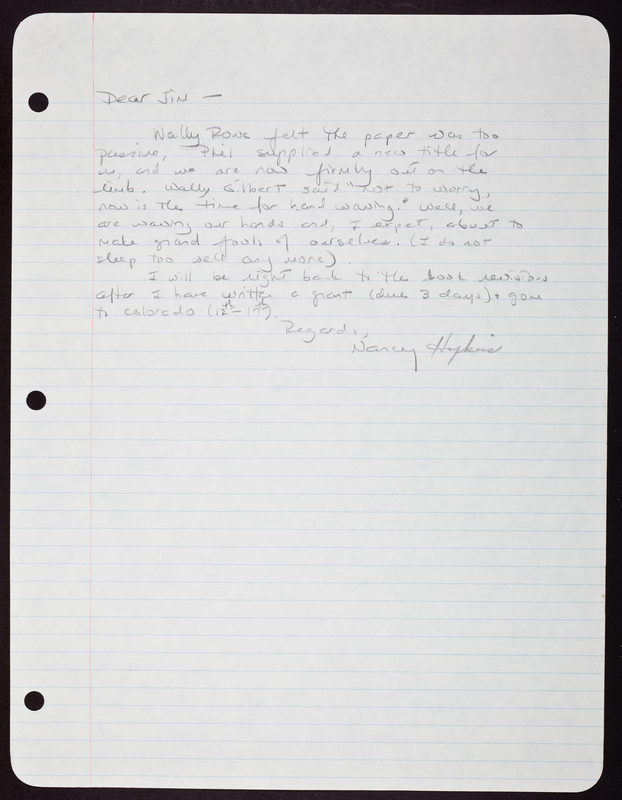 Dear Jim —
Wally Rowe felt the paper was too
passive, Phil supplied a new title for
us, and we are now firmly out on the
limb. Wally Gilbert said "not to worry,
now is the time for hand waving." Well, we
are waving our hands and, I expect, about to
make grand fools of ourselves. (I do not
sleep too well any more).
I will be right back to the book revisions
after I have written a grant (due 3 days) + gone
to Colorado (12th – 17th).
Regards,
Nancy Hopkins